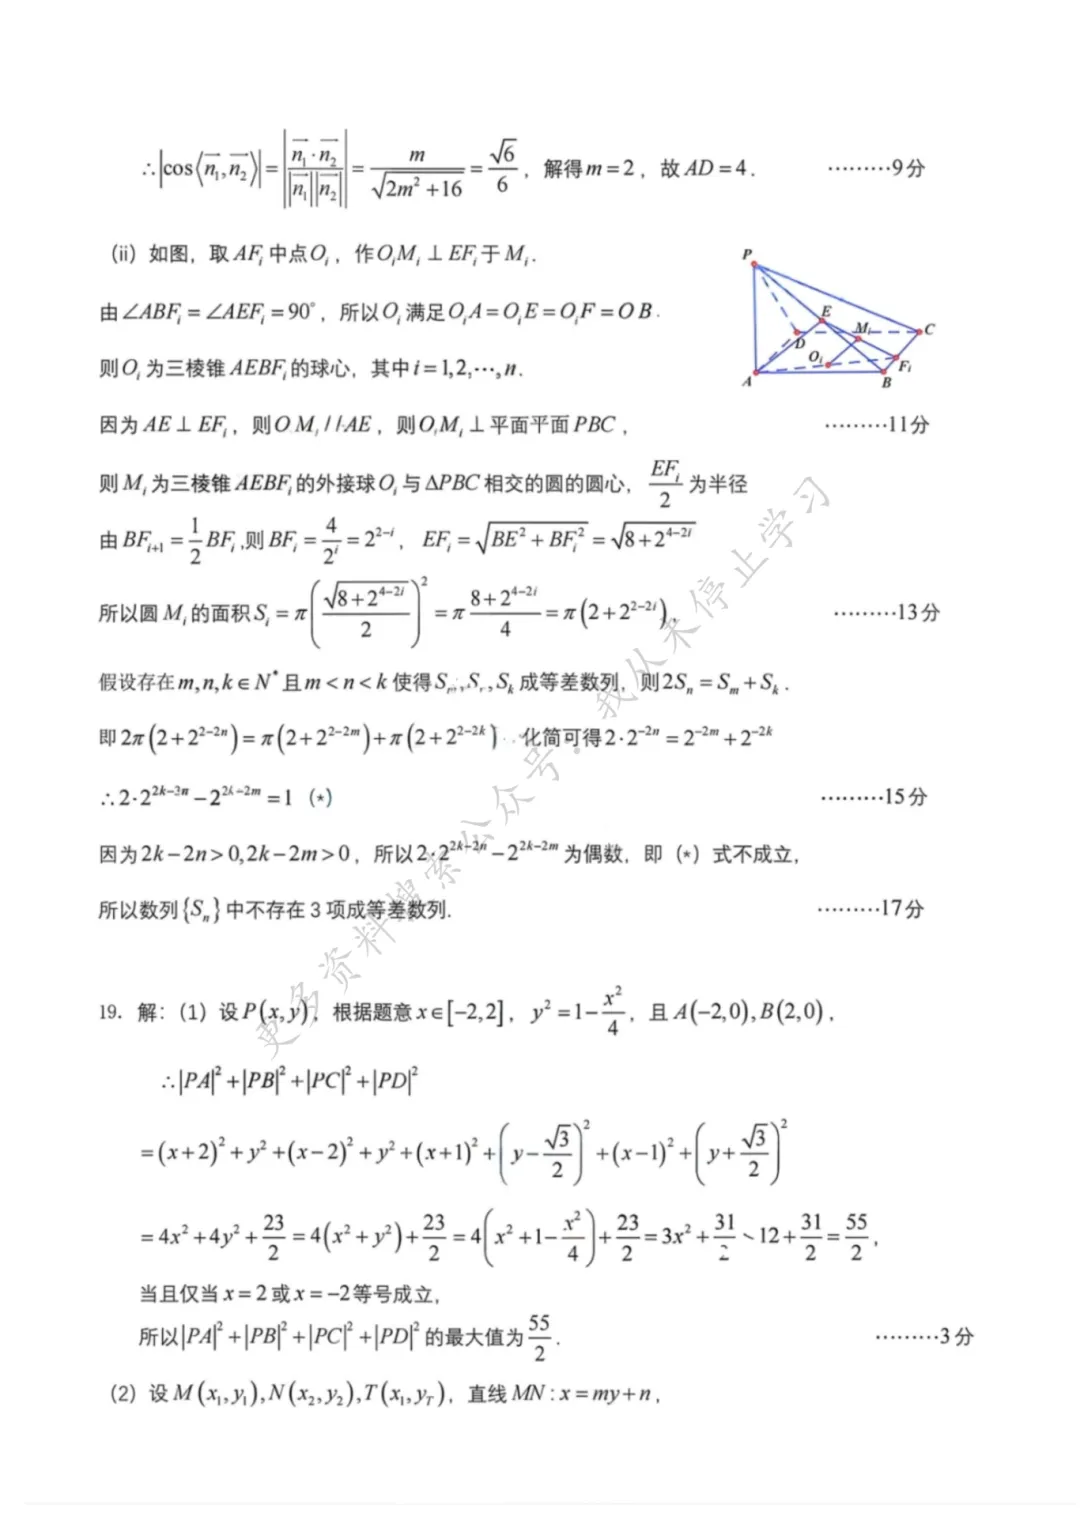 ∴|cos⟨n₁,n₂⟩|=|n₁·n₂/(|n₁||n₂|)|=m/√(2m²+16)=√6/6，解得m=2，故AD=4. ………9分
（ii）如图，取AFᵢ中点Oᵢ，作OᵢMᵢ⊥EFᵢ于Mᵢ.
P
E
Mᵢ
C
D
Oᵢ
Fᵢ
A
B
由∠ABFᵢ=∠AEFᵢ=90°，所以Oᵢ满足OᵢA=OᵢE=OᵢF=O B.
则Oᵢ为三棱锥AEBFᵢ的球心，其中i=1,2,⋯,n.
因为AE⊥EFᵢ，则OᵢMᵢ//AE，则OᵢMᵢ⊥平面平面PBC， ………11分
则Mᵢ为三棱锥AEBFᵢ的外接球Oᵢ与ΔPBC相交的圆的圆心，EFᵢ/2为半径
由BFᵢ₊₁=1/2 BFᵢ,则BFᵢ=4/2ⁱ=2²⁻ⁱ，EFᵢ=√(BE²+BFᵢ²)=√(8+2⁴⁻²ⁱ)
所以圆Mᵢ的面积Sᵢ=π(√(8+2⁴⁻²ⁱ)/2)²=π(8+2⁴⁻²ⁱ)/4=π(2+2²⁻²ⁱ), ………13分
假设存在m,n,k∈N*且m<n<k使得Sₘ,Sₙ,Sₖ成等差数列，则2Sₙ=Sₘ+Sₖ.
即2π(2+2²⁻²ⁿ)=π(2+2²⁻²ᵐ)+π(2+2²⁻²ᵏ)，化简可得2·2⁻²ⁿ=2⁻²ᵐ+2⁻²ᵏ
∴2·2²ᵏ⁻²ⁿ−2²ᵏ⁻²ᵐ=1（*） ………15分
因为2k−2n>0,2k−2m>0，所以2·2²ᵏ⁻²ⁿ−2²ᵏ⁻²ᵐ为偶数，即（*）式不成立，
所以数列{Sₙ}中不存在3项成等差数列. ………17分
19. 解：（1）设P(x,y)，根据题意x∈[−2,2]，y²=1−x²/4，且A(−2,0),B(2,0)，
∴|PA|²+|PB|²+|PC|²+|PD|²
=(x+2)²+y²+(x−2)²+y²+(x+1)²+(y−√3/2)²+(x−1)²+(y+√3/2)²
=4x²+4y²+23/2=4(x²+y²)+23/2=4(x²+1−x²/4)+23/2=3x²+31/2 12+31/2=55/2，
当且仅当x=2或x=−2等号成立，
所以|PA|²+|PB|²+|PC|²+|PD|²的最大值为55/2. ………3分
（2）设M(x₁,y₁),N(x₂,y₂),T(x₁,y_T)，直线MN:x=my+n，
更多资料搜索公众号：我从未停止学习